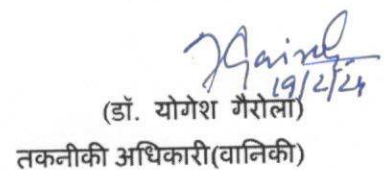 19/2/24
(डॉ. योगेश गैरोला)
तकनीकी अधिकारी(वानिकी)